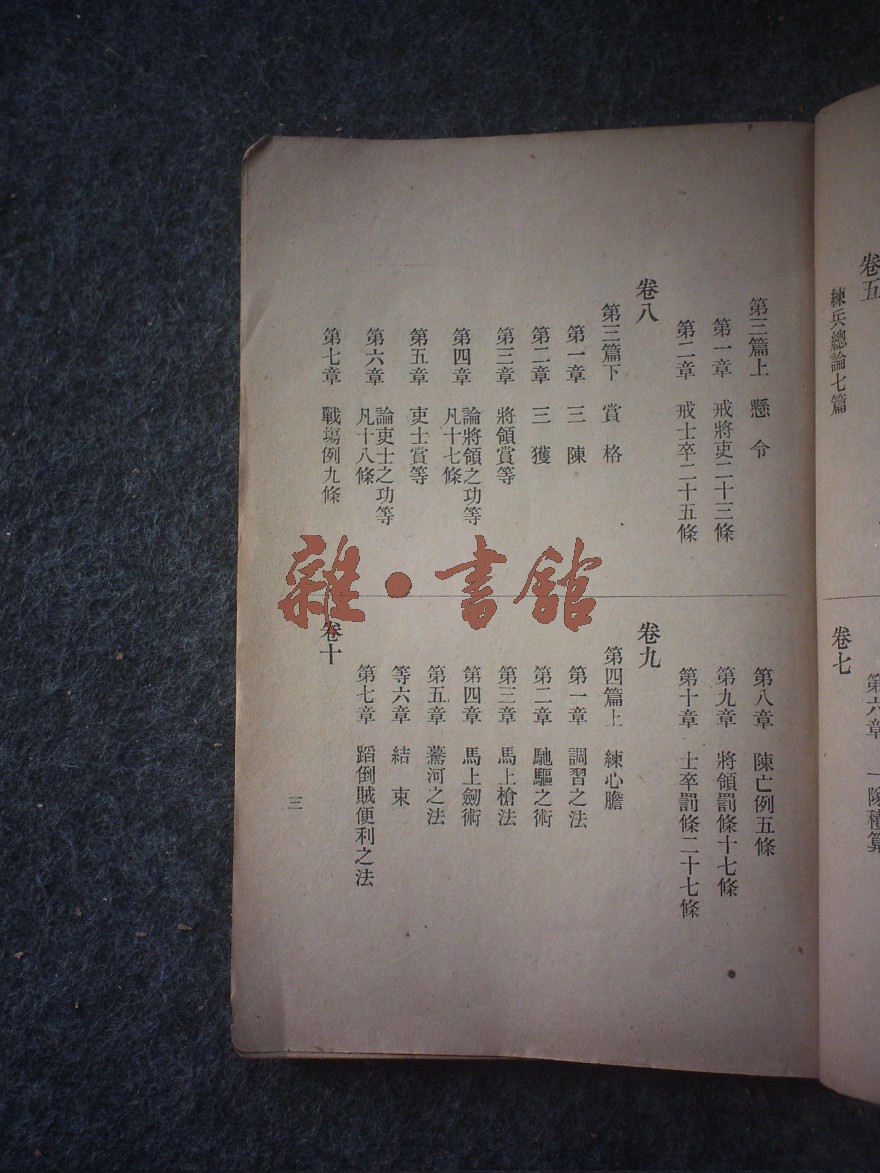 卷五
練兵總論七篇
卷七
第六章 一隊積算
第三篇上 懸令
第一章 戒將吏二十三條
第二章 戒士卒二十五條
卷八
第三篇下 賞格
第一章 三陳
第二章 三獲
第三章 將領賞等
第四章 論將領之功等
凡十七條
第五章 吏士賞等
第六章 論吏士之功等
凡十八條
第七章 戰塲例九條
第八章 陳亡例五條
第九章 將領罰條十七條
第十章 士卒罰條二十七條
卷九
第四篇上 練心膽
第一章 調習之法
第二章 馳驅之術
第三章 馬上槍法
第四章 馬上劒術
第五章 驀河之法
等六章 結束
第七章 蹈倒賊便利之法
卷十
三
雜·書館